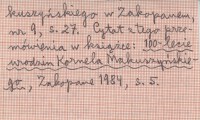 kuszyńskiego w Zakopanem,
nr 9, s. 27. Cytat z tego prze-
mówienia w książce: 100-lecie
urodzin Kornela Makuszyńskie-
go, Zakopane 1984, s. 5.